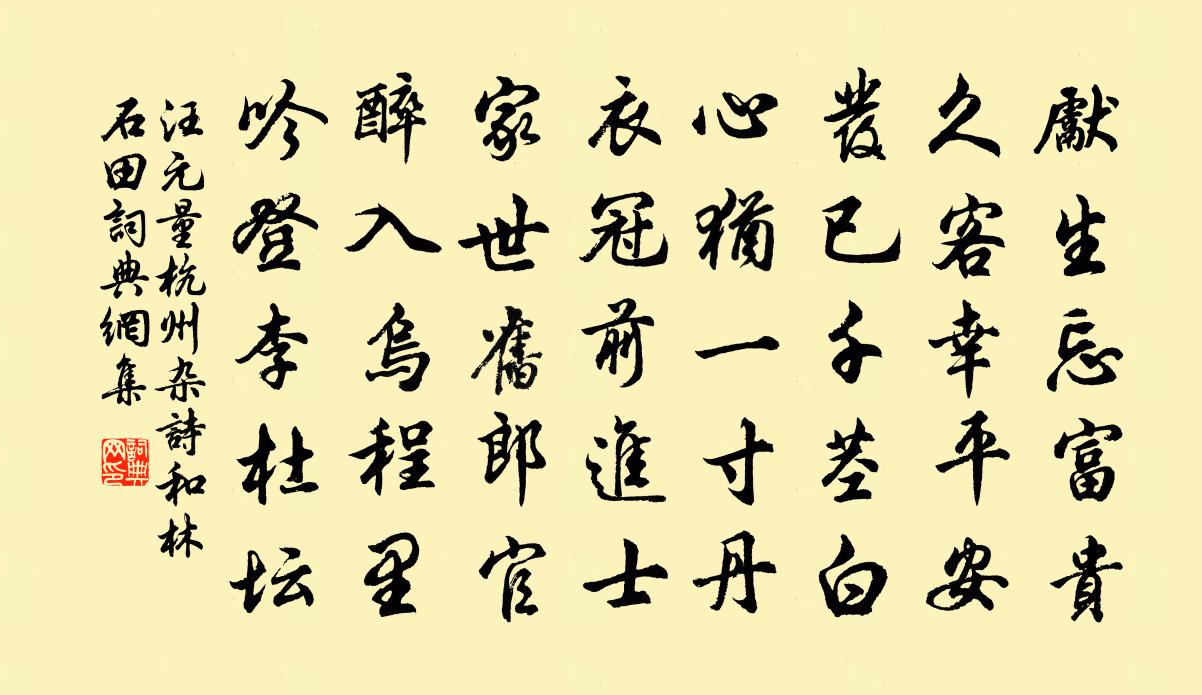 獻生忘富貴
久客幸平安
發已千茎白
心猶一寸丹
衣冠前進士
家世舊郎官
醉入烏程里
吟登李杜坛
汪元量杭州杂詩和林
石田詞典網集
詞典
网印